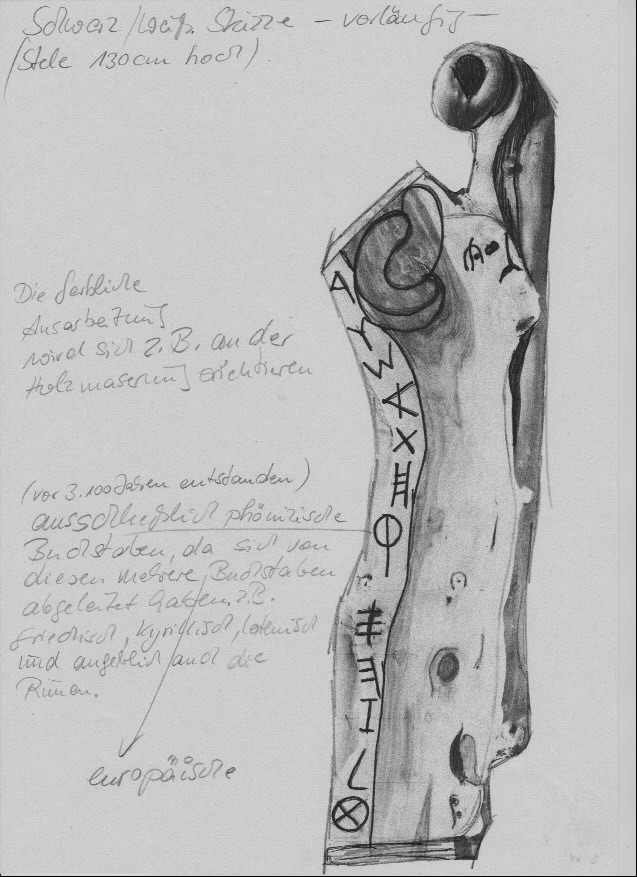 Schwarz/weiß Skizze – vorläufig –
(Stele 130cm hoch)
Die farbliche
Ausarbeitung
wird sich z.B. an der
Holzmaserung orientieren
(vor 3.100 Jahren entstanden)
ausschließlich phönizische
Buchstaben, da sich von
diesen mehrere Buchstaben
abgeleitet haben z.B.
Griechisch, kyrillisch, lateinisch
und angeblich auch die
Runen.
europäische